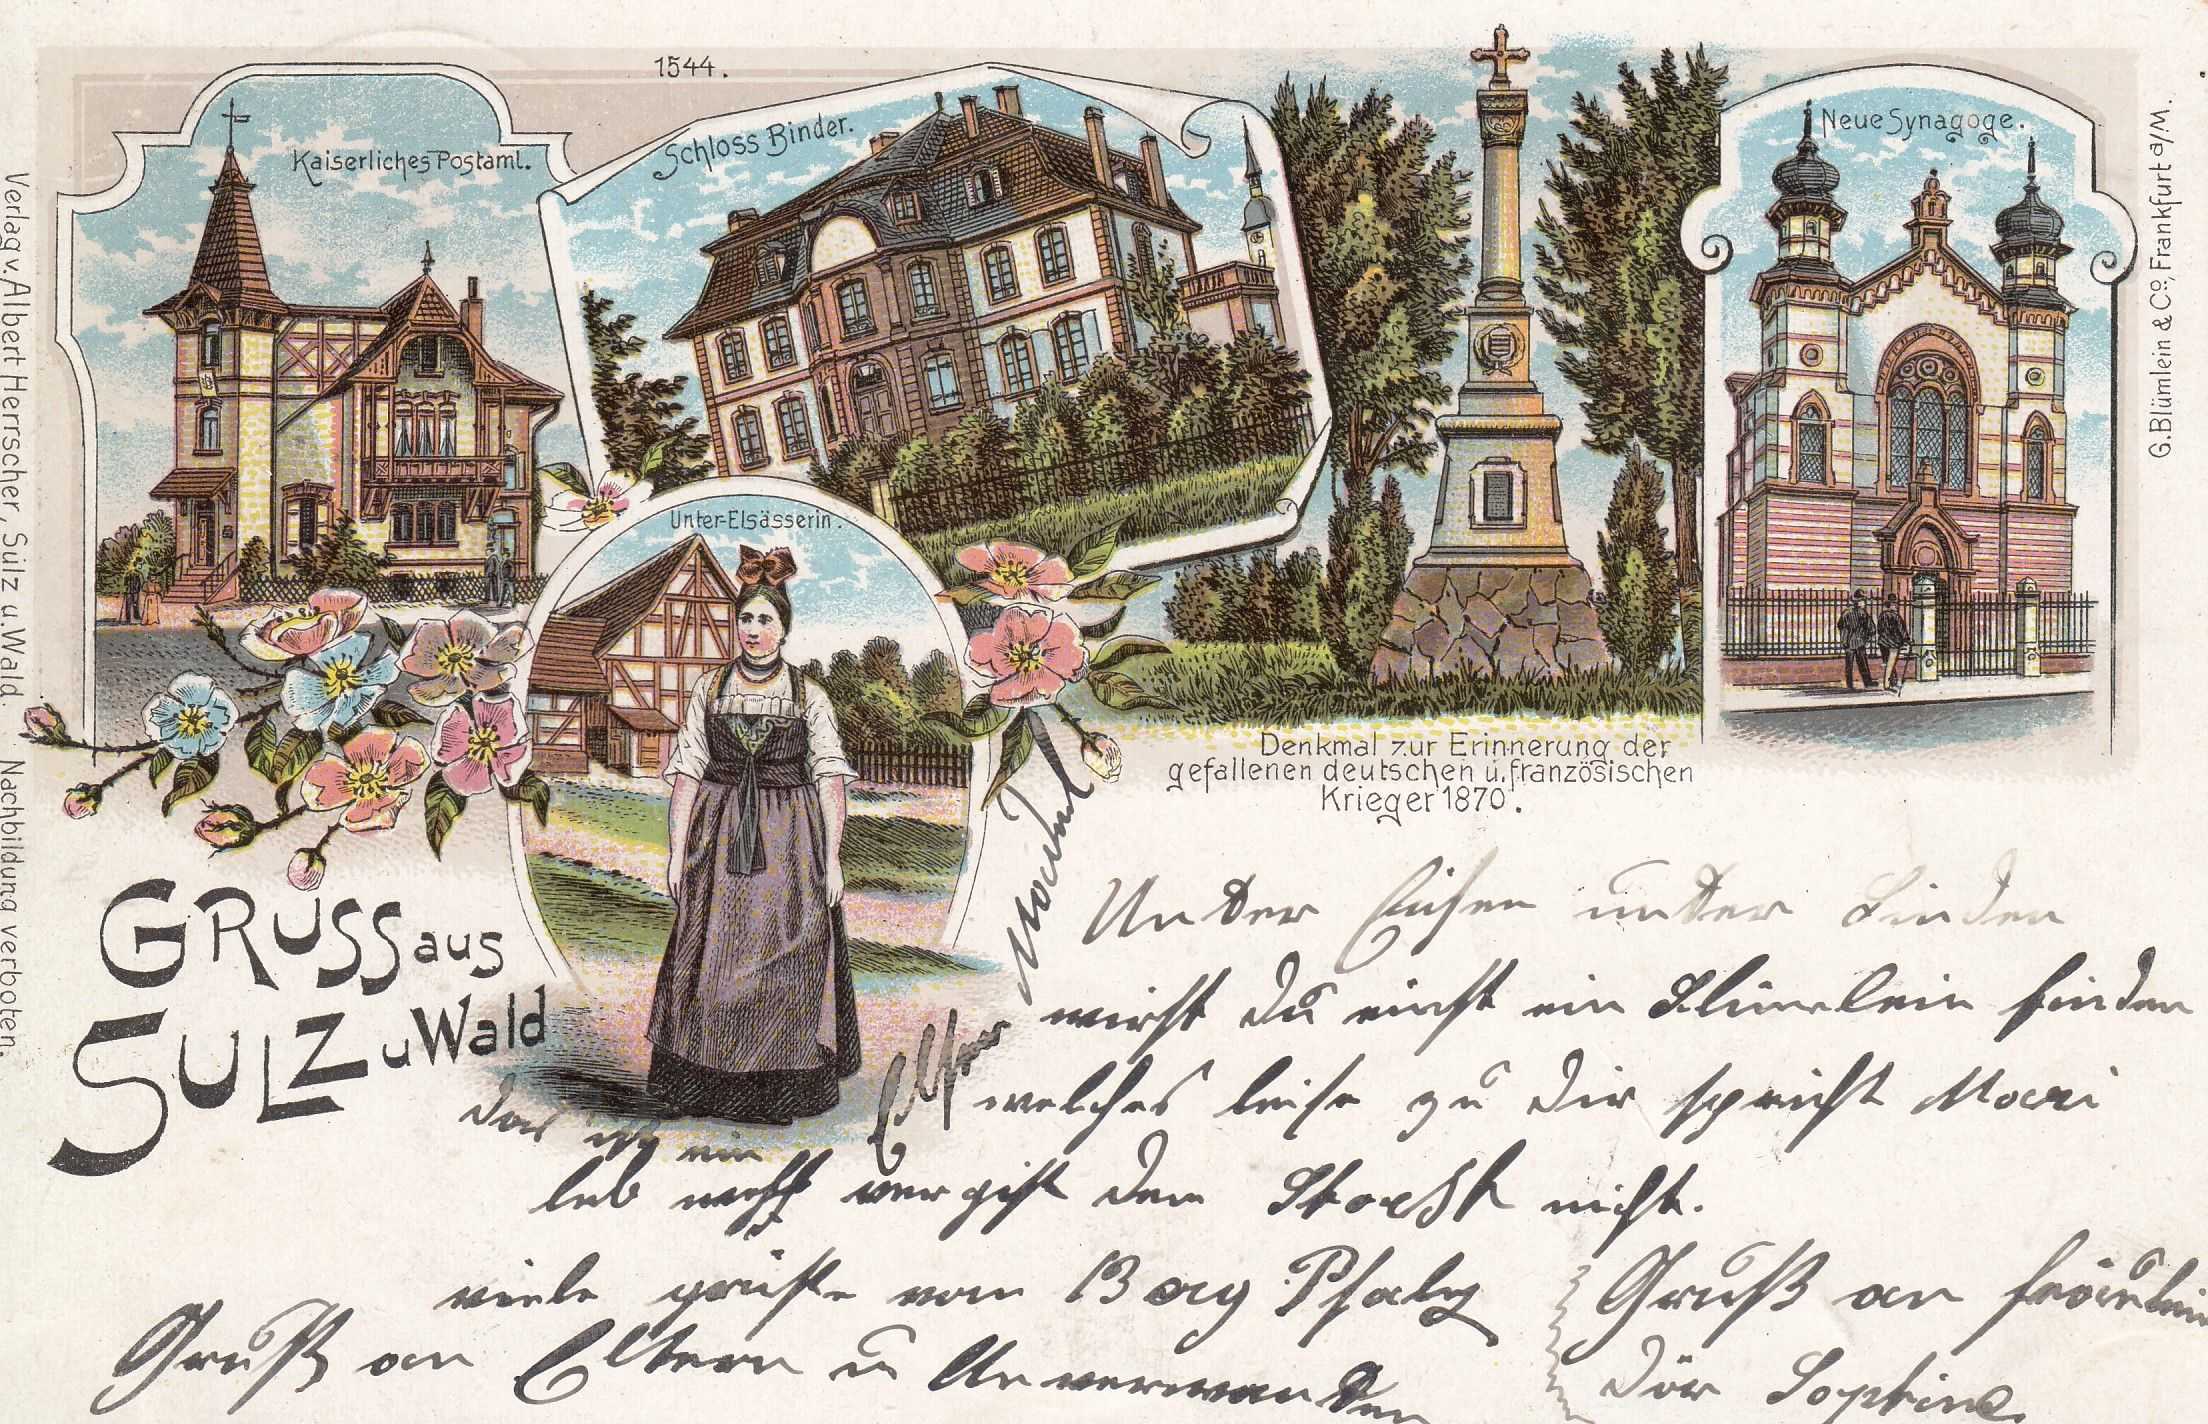 1544.
Kaiserliches Postamt.
Schloss Binder.
Neue Synagoge.
Unter-Elsässerin.
Denkmal zur Erinnerung der
gefallenen deutschen u. französischen
Krieger 1870.
Verlag v. Albert Herrscher, Sulz u. Wald. Nachbildung verboten.
G. Blümlein & Co., Frankfurt a/M.
GRUSS aus
SULZ u Wald
das ist ein
Unter Eichen unter Linden
wirst du einst ein Blümelein finden
welches leise zu dir spricht
nicht vergißt nicht.
viele grüße von
Gruß an Eltern u
Gruß an fräulein